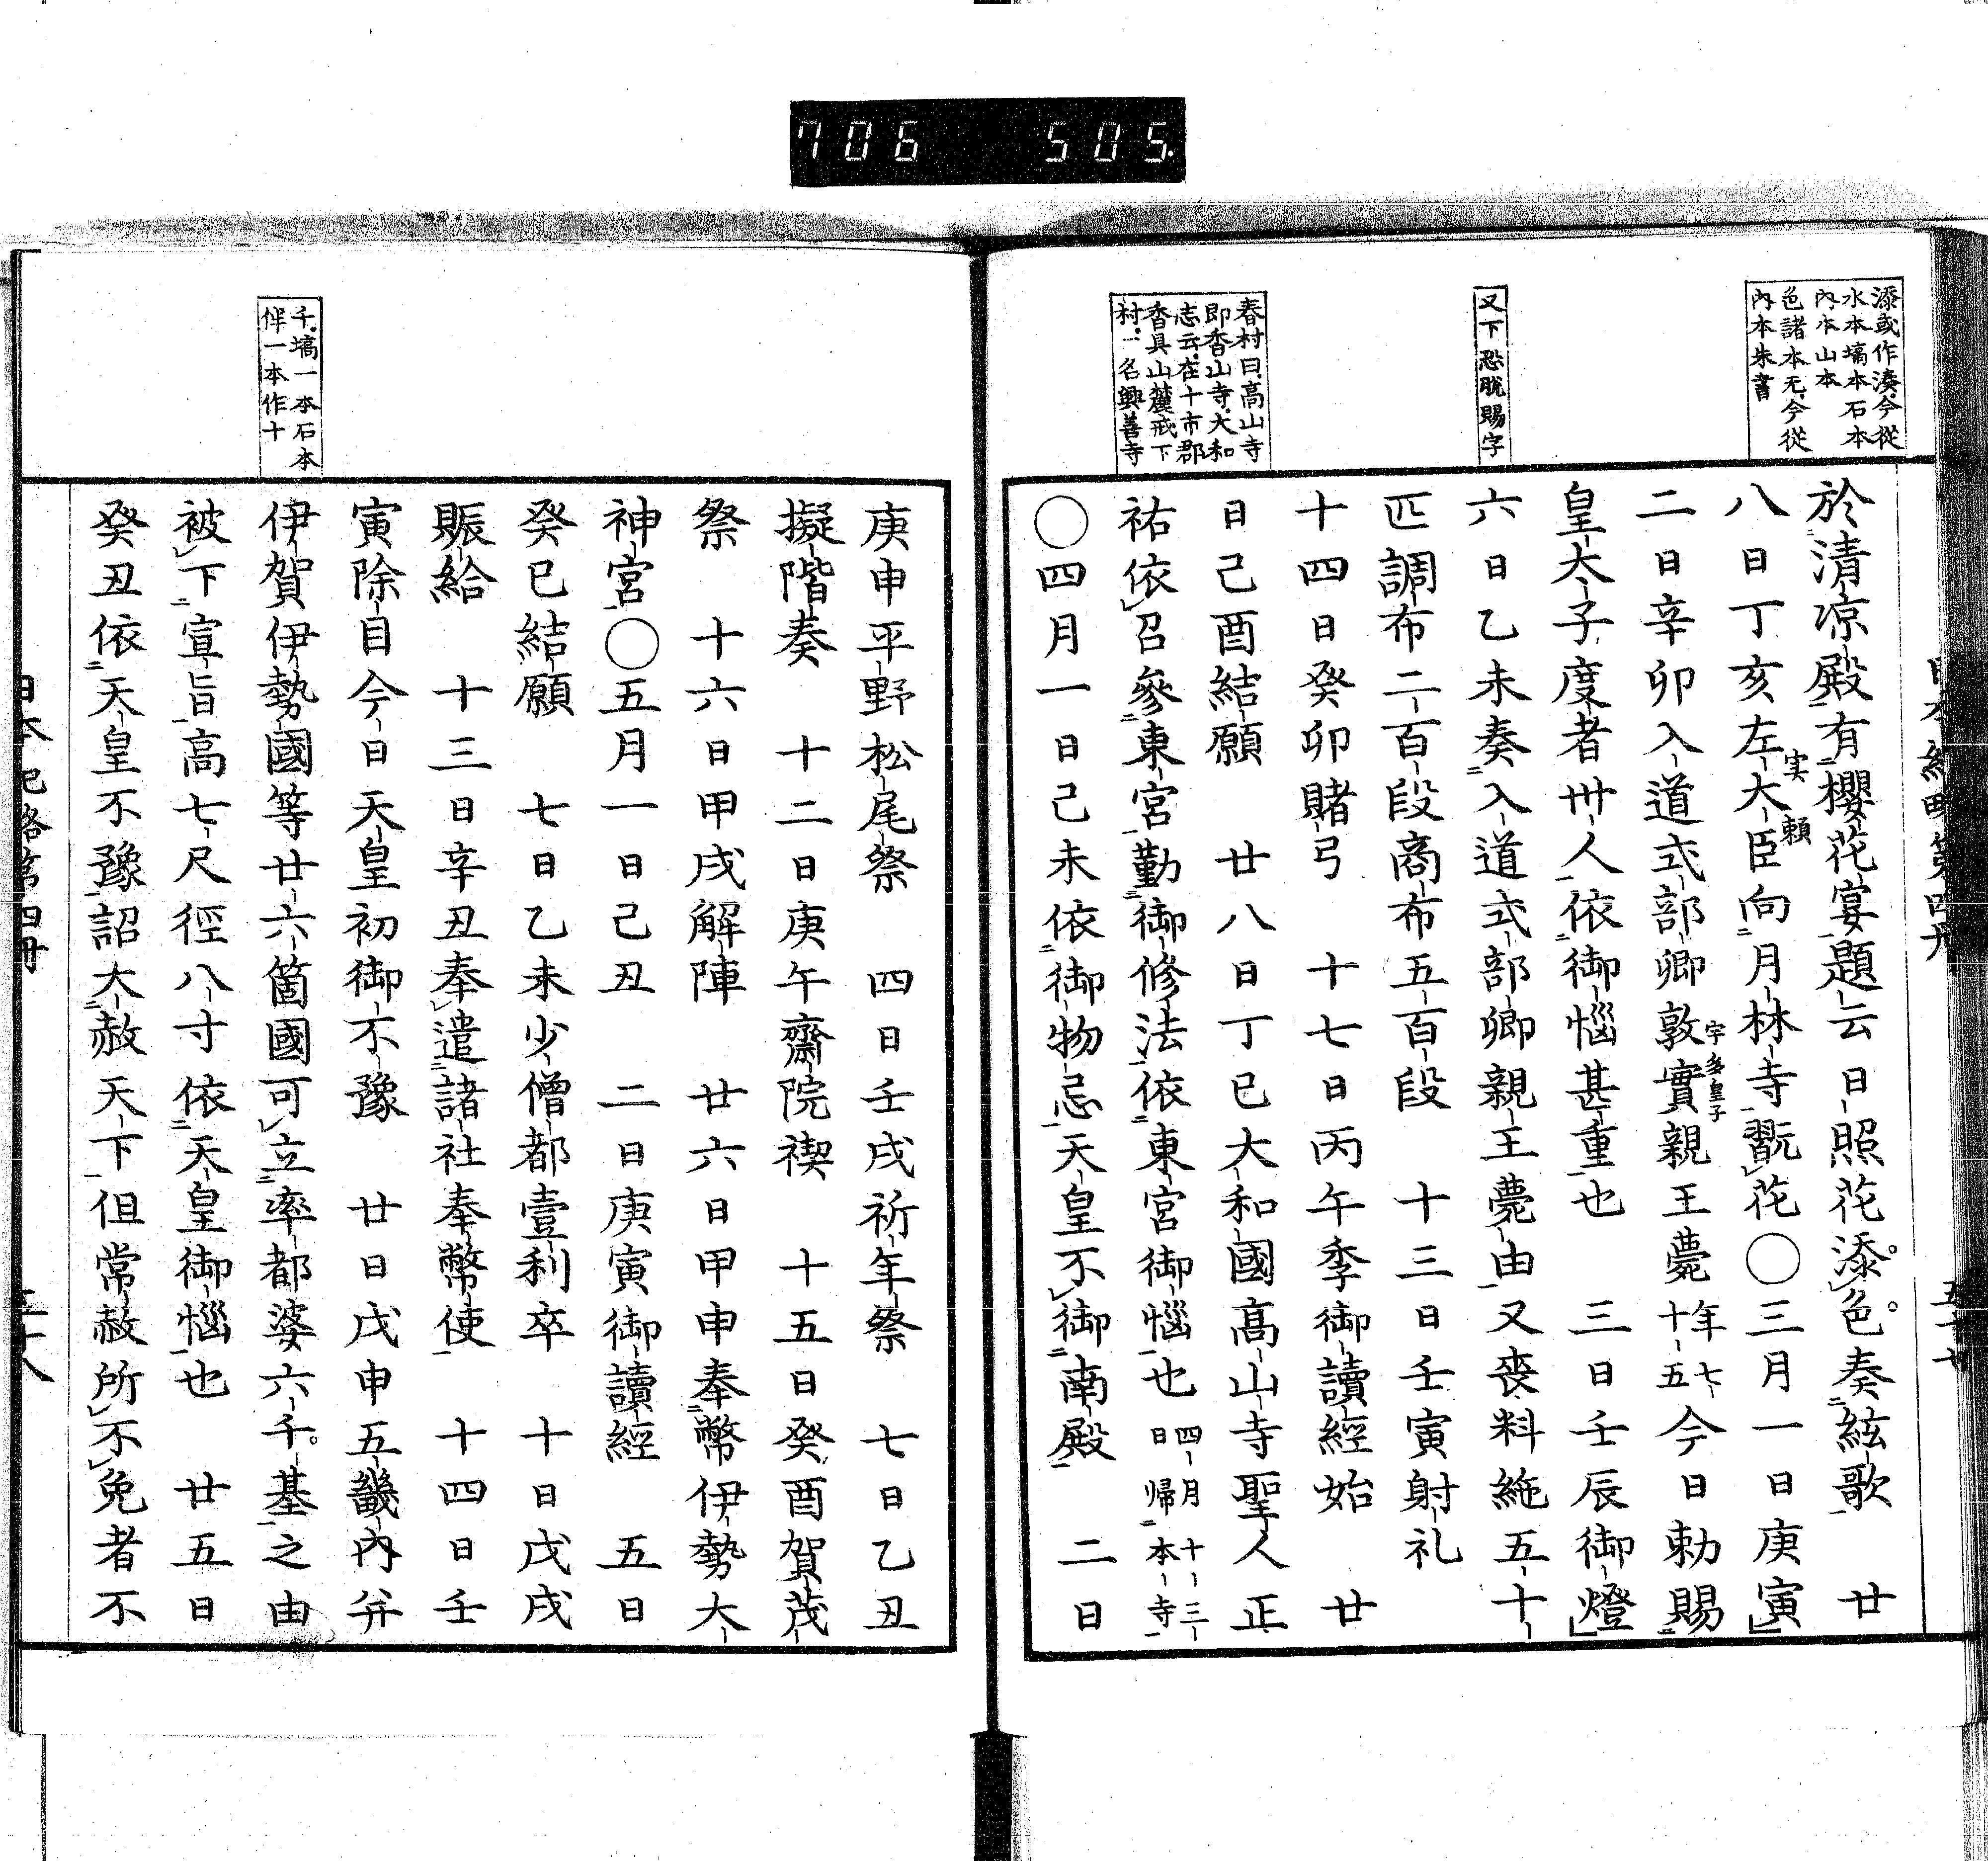 706 505
添或作湊、今從
水本塙本石本
内本山本
色諸本无、今從
内本朱書
又下恐脱賜字
春村曰、高山寺
即香山寺、大和
志云、在十市郡
香具山麓戒下
村、一名興善寺
於清凉殿有櫻花宴題云日照花添色奏絃歌 廿
八日丁亥左大臣向月林寺翫花〇三月一日庚寅
実頼
二日辛卯入道式部卿敦實親王薨年七十五今日勅賜
宇多皇子
皇太子度者卅人依御惱甚重也 三日壬辰御燈
六日乙未奏入道式部卿親王薨由又喪料絁五十
匹調布二百段商布五百段 十三日壬寅射礼
十四日癸卯賭弓 十七日丙午季御讀經始 廿
日己酉結願 廿八日丁巳大和國高山寺聖人正
祐依召參東宮勤御修法依東宮御惱也四月十三日歸本寺
〇四月一日己未依御物忌天皇不御南殿 二日
千、塙一本石本
伴一本作十
庚申平野松尾祭 四日壬戌祈年祭 七日乙丑
擬階奏 十二日庚午齋院禊 十五日癸酉賀茂
祭 十六日甲戌解陣 廿六日甲申奉幣伊勢大
神宮〇五月一日己丑 二日庚寅御讀經 五日
癸巳結願 七日乙未少僧都壹利卒 十日戊戌
賑給 十三日辛丑奉遣諸社奉幣使 十四日壬
寅除目今日天皇初御不豫 廿日戊申五畿内并
伊賀伊勢國等廿六箇國可立率都婆六千基之由
被下宣旨高七尺徑八寸依天皇御惱也 廿五日
癸丑依天皇不豫詔大赦天下但常赦所不免者不